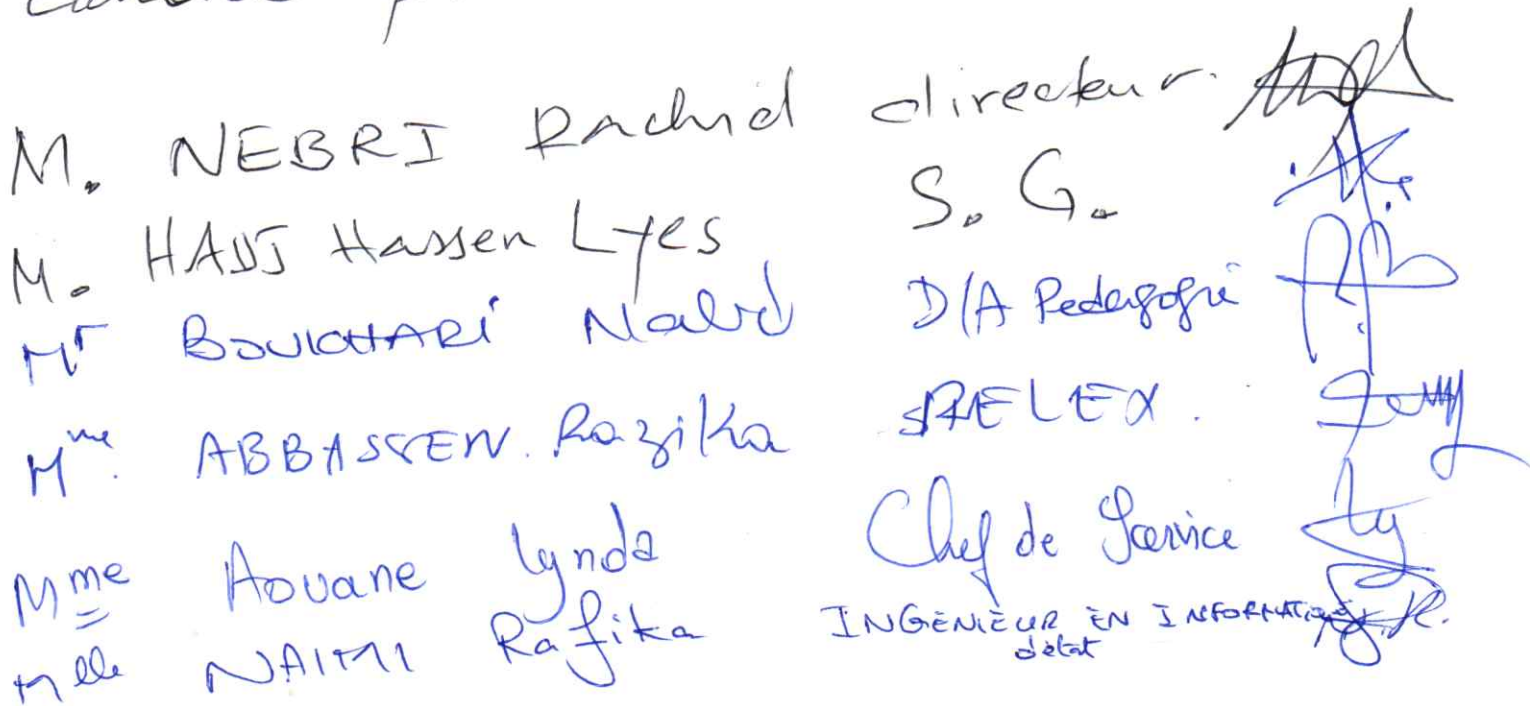 M. NEBRI Rachid directeur.
M. HADJ Hassen Lyes S. G.
Mr BOUKHARI Nabil D/A Pedagogie
Mme. ABBASSEN. Razika RELEX.
Mme Aouane lynda Chef de Service
Mlle NAIMI Rafika INGENIEUR EN INFORMATIQUE
d'état